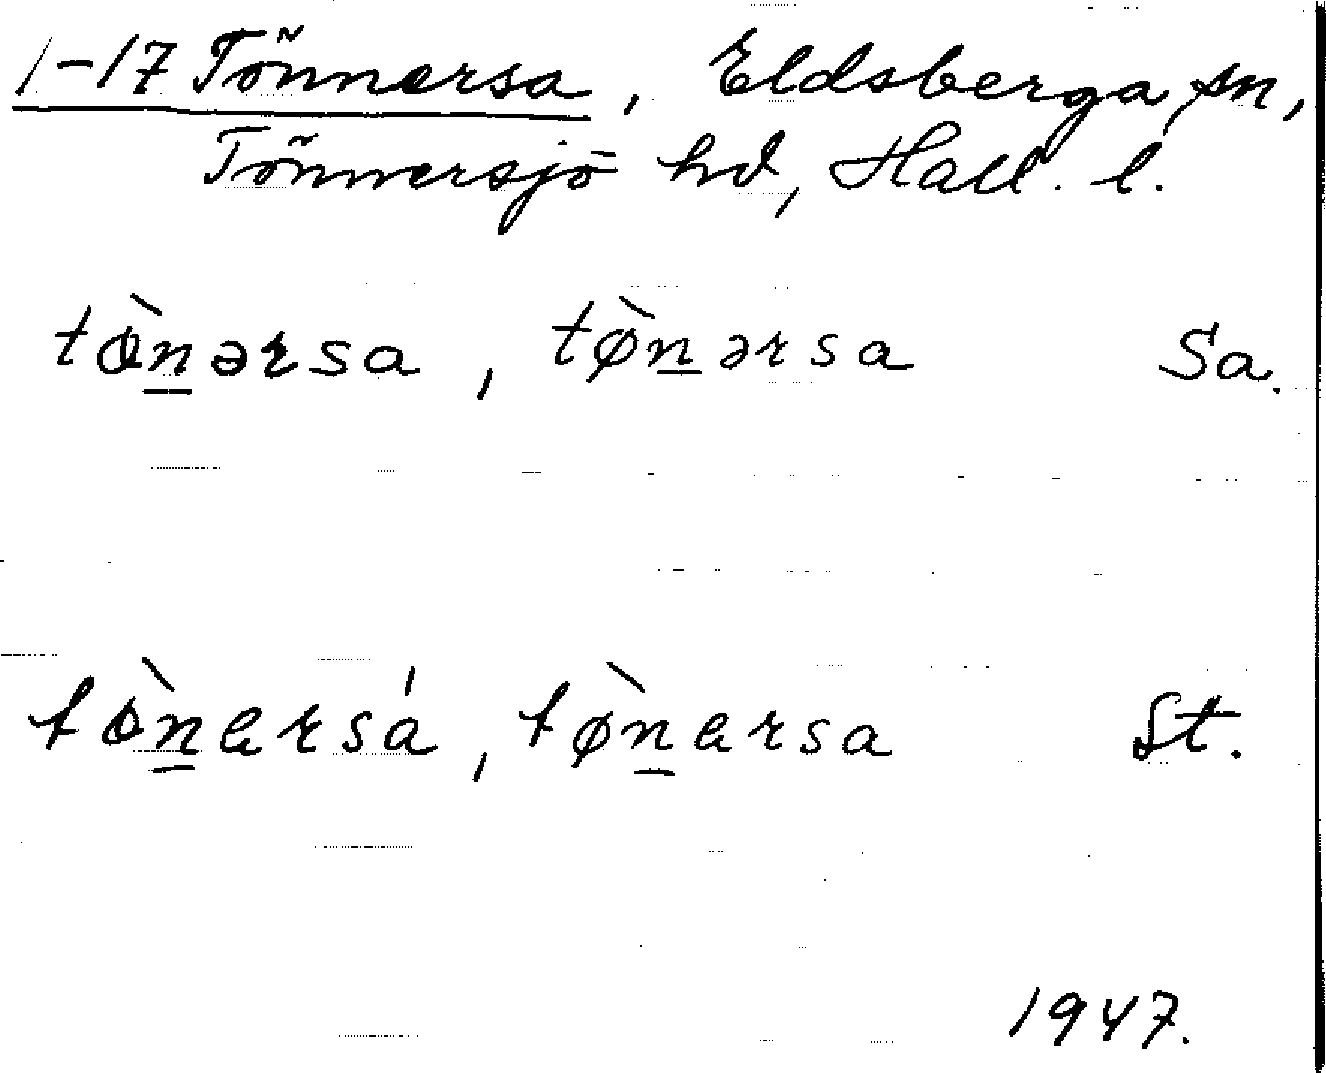 1-17 Tönnersa, Eldsberga sn,
Tönnersjö hd, Hall. l.
tὼn̲ərsa, tø̀n̲ərsa Sa.
tὼn̲ersá, tø̀n̲ersa St.
1947.